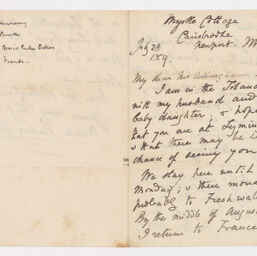 Myrtle Cottage
Carisbrooke
Newport.
July 28
1859
My dear Mr Allingham
I am in the Island
with my husband and
baby daughter; & hope
that you are at Lyming
so that there may be
chance of seeing you
We stay here until
Monday; & then move
probably to Freshwat
By the middle of Augus
I return to France